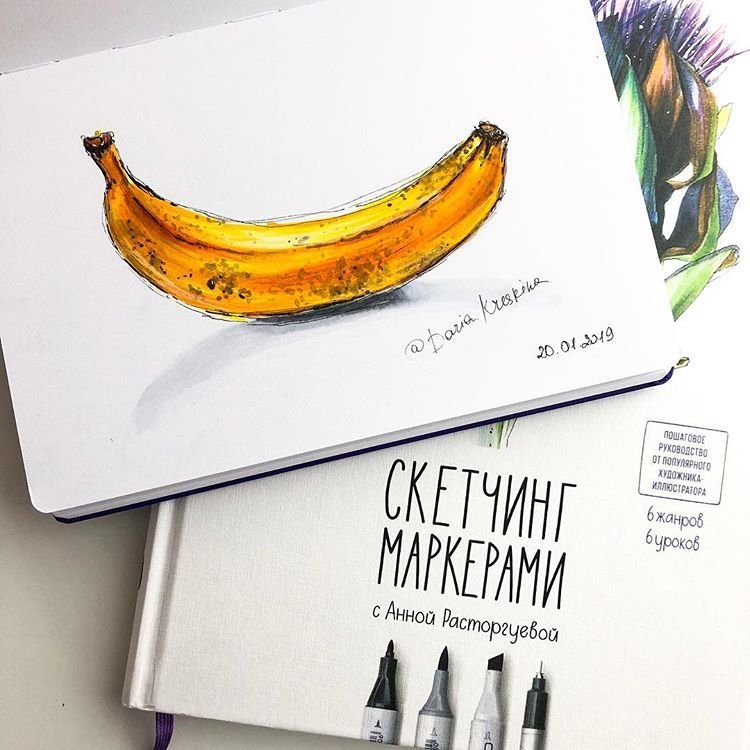 @Daria Kraskina
20.01.2019
ПОШАГОВОЕ
РУКОВОДСТВО
ОТ ПОПУЛЯРНОГО
ХУДОЖНИКА-
ИЛЛЮСТРАТОРА
6 жанров
6 уроков
СКЕТЧИНГ
МАРКЕРАМИ
с Анной Расторгуевой